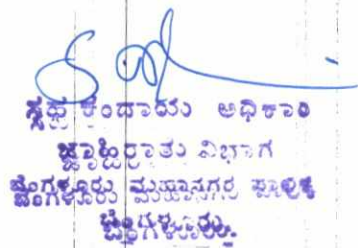 ಕಂದಾಯ ಅಧಿಕಾರಿ
ಜಾಹಿರಾತು ವಿಭಾಗ
ಬೆಂಗಳೂರು ಮಹಾನಗರ ಪಾಲಿಕೆ
ಬೆಂಗಳೂರು.